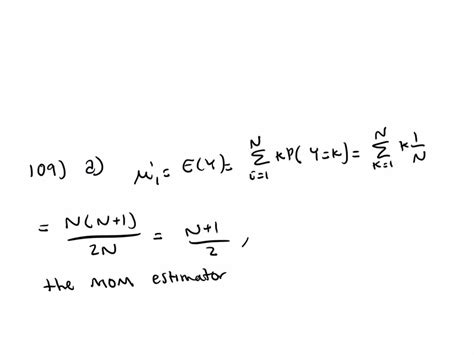 109) a) μ'₁ = E(Y) = ∑_{i=1}^{N} kP(Y=k) = ∑_{k=1}^{N} k 1/N
= N(N+1)/2N = N+1/2 ,
the MOM estimator